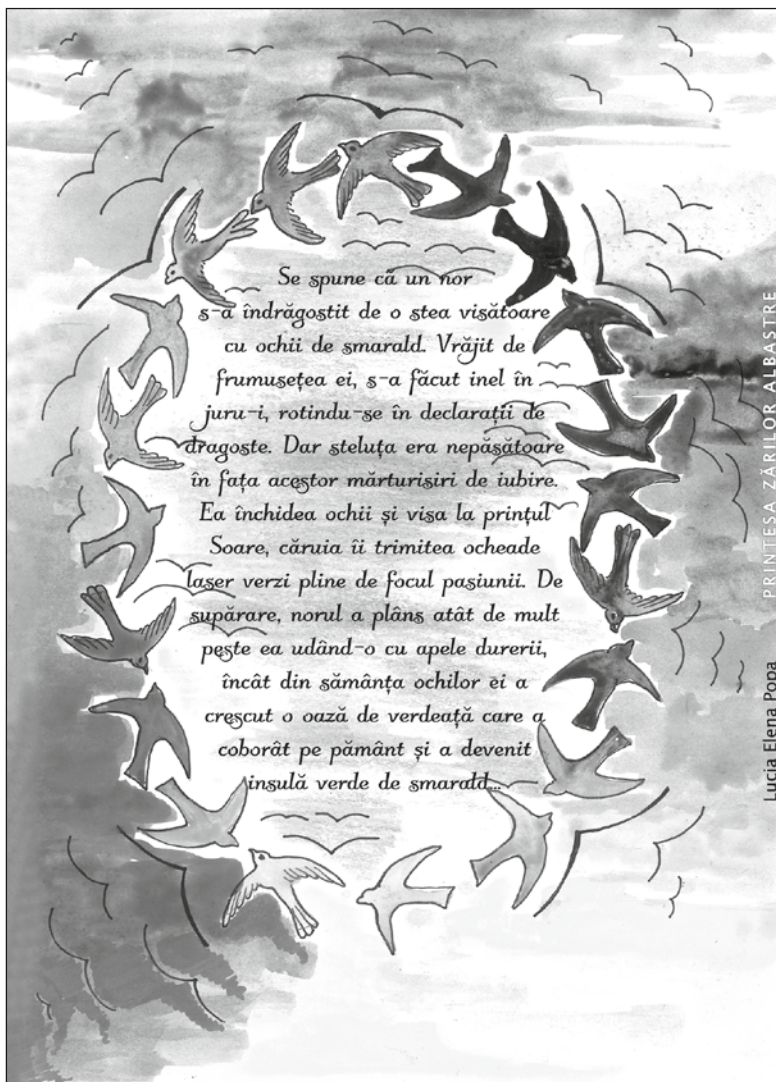 Se spune că un nor
s-a îndrăgostit de o stea visătoare
cu ochii de smarald. Vrăjit de
frumusețea ei, s-a făcut inel în
juru-i, rotindu-se în declarații de
dragoste. Dar steluța era nepăsătoare
în fața acestor mărturisiri de iubire.
Ea închidea ochii și visa la prințul
Soare, căruia îi trimitea ocheade
laser verzi pline de focul pasiunii. De
supărare, norul a plâns atât de mult
peste ea udând-o cu apele durerii,
încât din sămânța ochilor ei a
crescut o oază de verdeață care a
coborât pe pământ și a devenit
insulă verde de smarald...
Lucia Elena Popa
PRINȚESA ZĂRILOR ALBASTRE